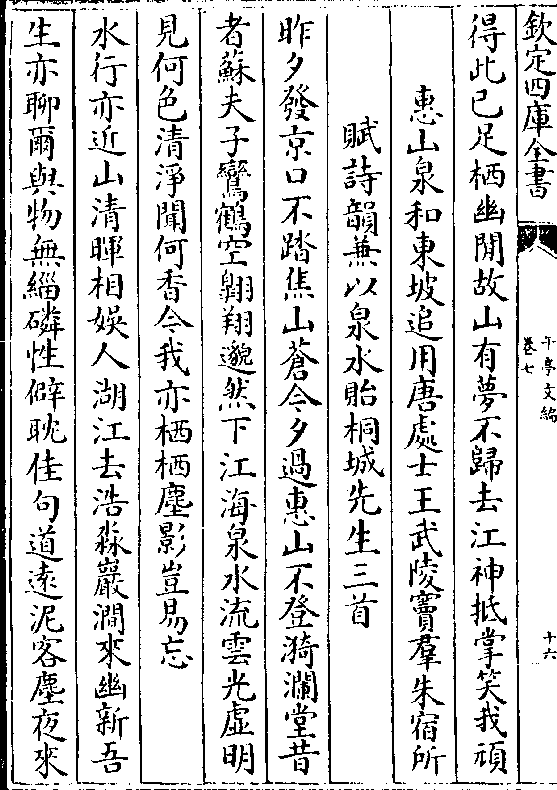 欽定四庫全書
千亭文編
卷七
十六
得此已足栖幽閒故山有夢不歸去江神抵掌笑我頑
惠山泉和東坡追用唐處士王武陵竇羣朱宿所
賦詩韻兼以泉水貽桐城先生三首
昨夕發京口不踏焦山蒼今夕過惠山不登漪瀾堂昔
者蘇夫子鸞鶴空翺翔邈然下江海泉水流雲光虛明
見何色清淨聞何香今我亦栖栖塵影豈易忘
水行亦近山清暉相娛人湖江去浩淼巖澗來幽新吾
生亦聊爾與物無緇磷性僻耽佳句道遠泥客塵夜來